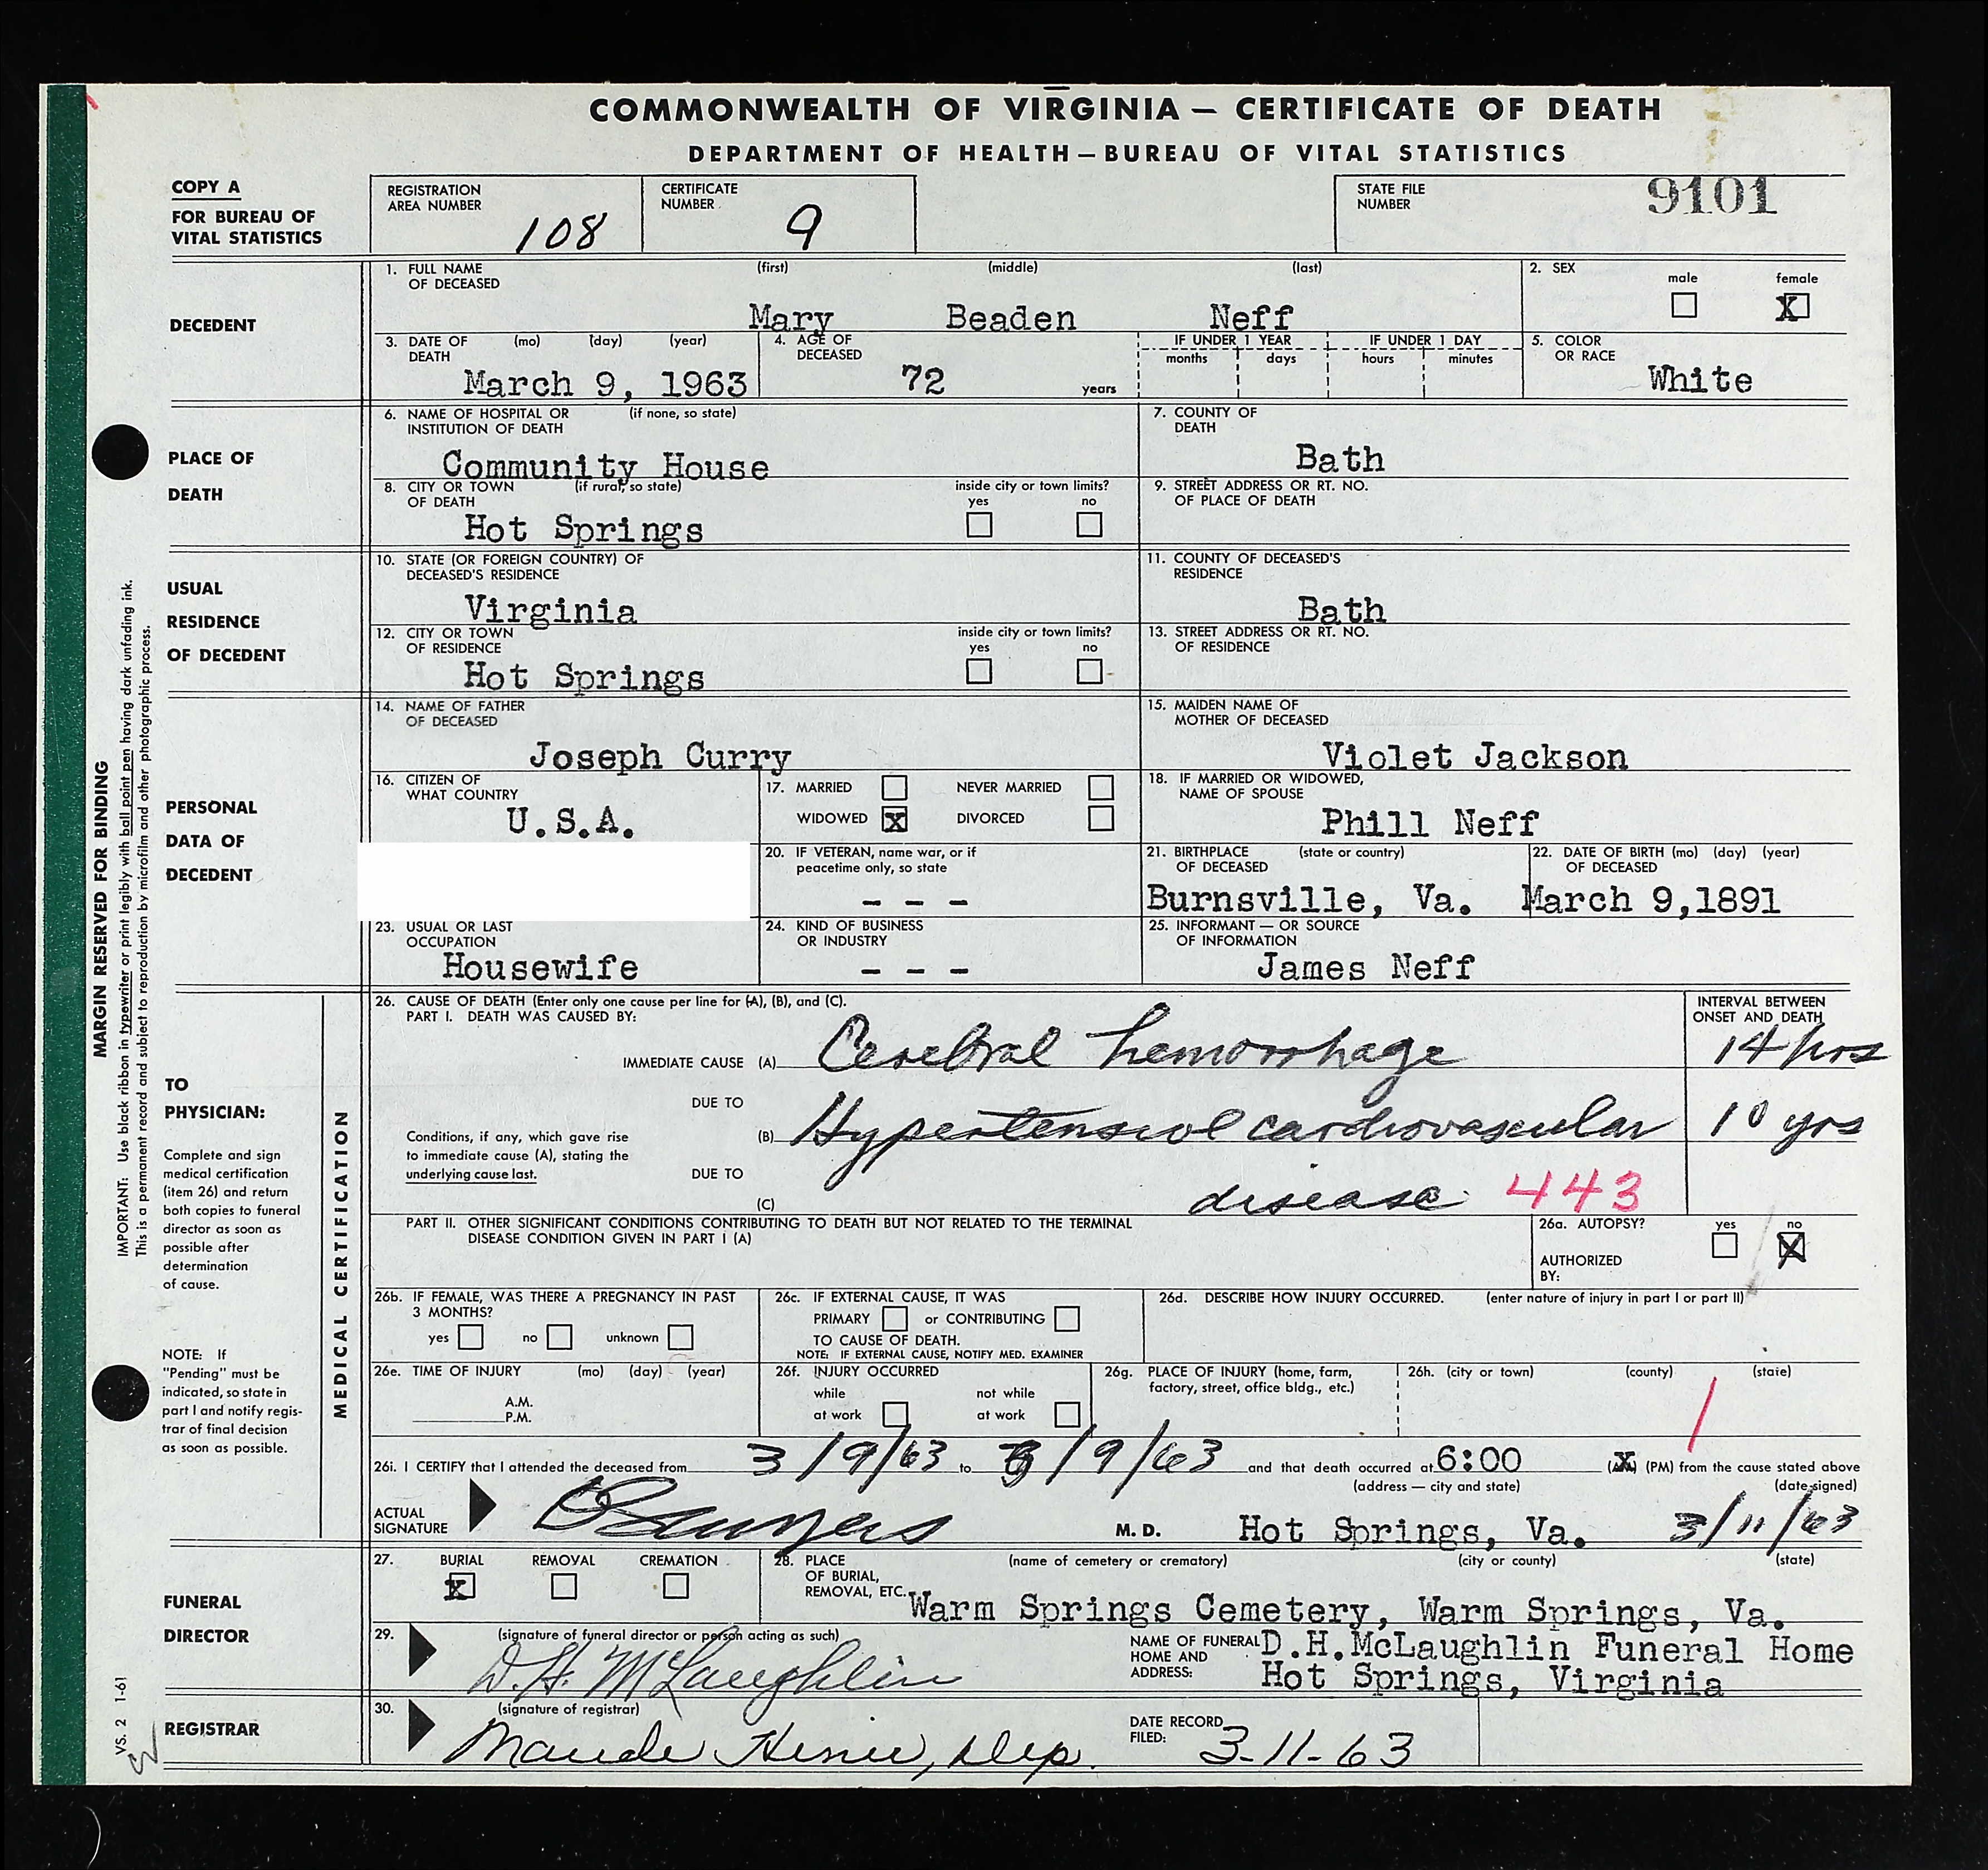 COMMONWEALTH OF VIRGINIA — CERTIFICATE OF DEATH
DEPARTMENT OF HEALTH — BUREAU OF VITAL STATISTICS
COPY A
FOR BUREAU OF
VITAL STATISTICS
REGISTRATION
AREA NUMBER
108
CERTIFICATE
NUMBER
9
STATE FILE
NUMBER
9101
DECEDENT
1. FULL NAME (first) (middle) (last)
OF DECEASED
Mary Beaden Neff
2. SEX
male female
X
3. DATE OF (mo) (day) (year)
DEATH
March 9, 1963
4. AGE OF
DECEASED
72 years
IF UNDER 1 YEAR
months days
IF UNDER 1 DAY
hours minutes
5. COLOR
OR RACE
White
PLACE OF
DEATH
6. NAME OF HOSPITAL OR (if none, so state)
INSTITUTION OF DEATH
Community House
7. COUNTY OF
DEATH
Bath
8. CITY OR TOWN (if rural, so state)
OF DEATH
inside city or town limits?
yes no
Hot Springs
9. STREET ADDRESS OR RT. NO.
OF PLACE OF DEATH
USUAL
RESIDENCE
OF DECEDENT
10. STATE (OR FOREIGN COUNTRY) OF
DECEASED'S RESIDENCE
Virginia
11. COUNTY OF DECEASED'S
RESIDENCE
Bath
12. CITY OR TOWN
OF RESIDENCE
inside city or town limits?
yes no
Hot Springs
13. STREET ADDRESS OR RT. NO.
OF RESIDENCE
PERSONAL
DATA OF
DECEDENT
14. NAME OF FATHER
OF DECEASED
Joseph Curry
15. MAIDEN NAME OF
MOTHER OF DECEASED
Violet Jackson
16. CITIZEN OF
WHAT COUNTRY
U.S.A.
17. MARRIED NEVER MARRIED
WIDOWED X DIVORCED
18. IF MARRIED OR WIDOWED,
NAME OF SPOUSE
Phill Neff
20. IF VETERAN, name war, or if
peacetime only, so state
- - -
21. BIRTHPLACE (state or country)
OF DECEASED
Burnsville, Va.
22. DATE OF BIRTH (mo) (day) (year)
OF DECEASED
March 9,1891
23. USUAL OR LAST
OCCUPATION
Housewife
24. KIND OF BUSINESS
OR INDUSTRY
- - -
25. INFORMANT — OR SOURCE
OF INFORMATION
James Neff
MARGIN RESERVED FOR BINDING
IMPORTANT: Use black ribbon in typewriter or print legibly with ball point pen having dark unfading ink.
This is a permanent record and subject to reproduction by microfilm and other photographic process.
TO
PHYSICIAN:
Complete and sign
medical certification
(item 26) and return
both copies to funeral
director as soon as
possible after
determination
of cause.
NOTE: If
"Pending" must be
indicated, so state in
part I and notify regis-
trar of final decision
as soon as possible.
MEDICAL CERTIFICATION
26. CAUSE OF DEATH (Enter only one cause per line for (A), (B), and (C).
PART I. DEATH WAS CAUSED BY:
INTERVAL BETWEEN
ONSET AND DEATH
IMMEDIATE CAUSE (A) Cerebral hemorrhage 14 hrs
DUE TO
Conditions, if any, which gave rise
to immediate cause (A), stating the
underlying cause last.
(B) Hypertensive cardiovascular 10 yrs
DUE TO
(C) disease 443
PART II. OTHER SIGNIFICANT CONDITIONS CONTRIBUTING TO DEATH BUT NOT RELATED TO THE TERMINAL
DISEASE CONDITION GIVEN IN PART I (A)
26a. AUTOPSY? yes no
X
AUTHORIZED
BY:
26b. IF FEMALE, WAS THERE A PREGNANCY IN PAST
3 MONTHS?
yes no unknown
26c. IF EXTERNAL CAUSE, IT WAS
PRIMARY or CONTRIBUTING
TO CAUSE OF DEATH.
NOTE: IF EXTERNAL CAUSE, NOTIFY MED. EXAMINER
26d. DESCRIBE HOW INJURY OCCURRED. (enter nature of injury in part I or part II)
26e. TIME OF INJURY (mo) (day) (year)
A.M.
P.M.
26f. INJURY OCCURRED
while not while
at work at work
26g. PLACE OF INJURY (home, farm,
factory, street, office bldg., etc.)
26h. (city or town) (county) (state)
26i. I CERTIFY that I attended the deceased from 3/9/63 to 3/9/63 and that death occurred at 6:00 (AM) (PM) from the cause stated above
(address — city and state) (date signed)
ACTUAL
SIGNATURE
M. D. Hot Springs, Va. 3/11/63
FUNERAL
DIRECTOR
27. BURIAL REMOVAL CREMATION
X
28. PLACE (name of cemetery or crematory) (city or county) (state)
OF BURIAL,
REMOVAL, ETC.
Warm Springs Cemetery, Warm Springs, Va.
29. (signature of funeral director or person acting as such)
D. H. McLaughlin
NAME OF FUNERAL
HOME AND
ADDRESS:
D.H.McLaughlin Funeral Home
Hot Springs, Virginia
REGISTRAR
30. (signature of registrar)
Maude Hiner, Dep.
DATE RECORD
FILED: 3-11-63
VS. 2 1-61